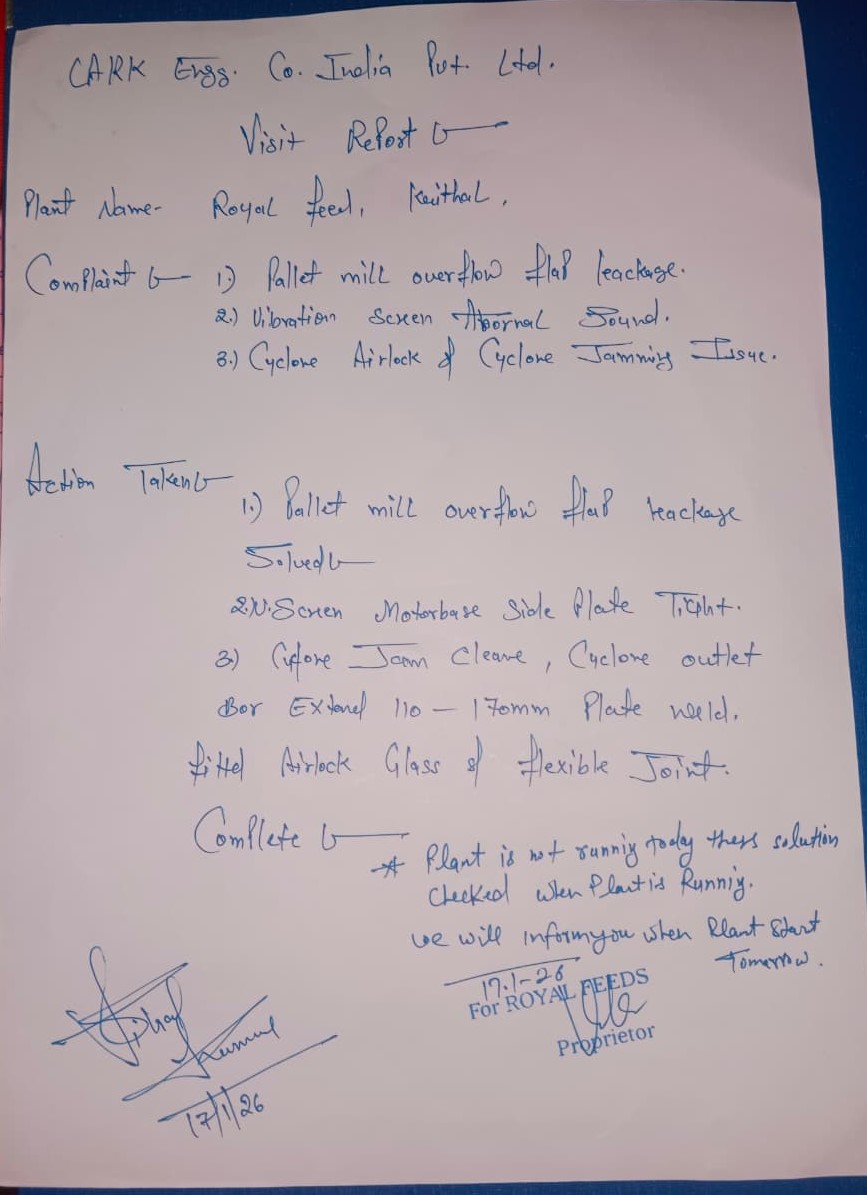 CARK Engg. Co. India Pvt. Ltd.
Visit Report
Plant Name- Royal feed, Kaithal,
Complaint 1) Pallet mill overflow flap leackage.
2.) Vibration Screen Abornal Sound.
3.) Cyclone Airlock & Cyclone Jamming Issue.
Action Taken
1.) Pallet mill overflow flap leackage
Solved
2.V.Screen Motorbase Side Plate Tight.
3) Cyclone Jam Cleane, Cyclone outlet
Bor Extend 110 - 170mm Plate weld.
fitted Airlock Glass & flexible Joint.
Complete
* Plant is not runnig today thess solution
Checked when Plant is Runnig.
we will inform you when Plant Start
Tomorrow.
17.1-26
For ROYAL FEEDS
Proprietor
Kumar
17/1/26